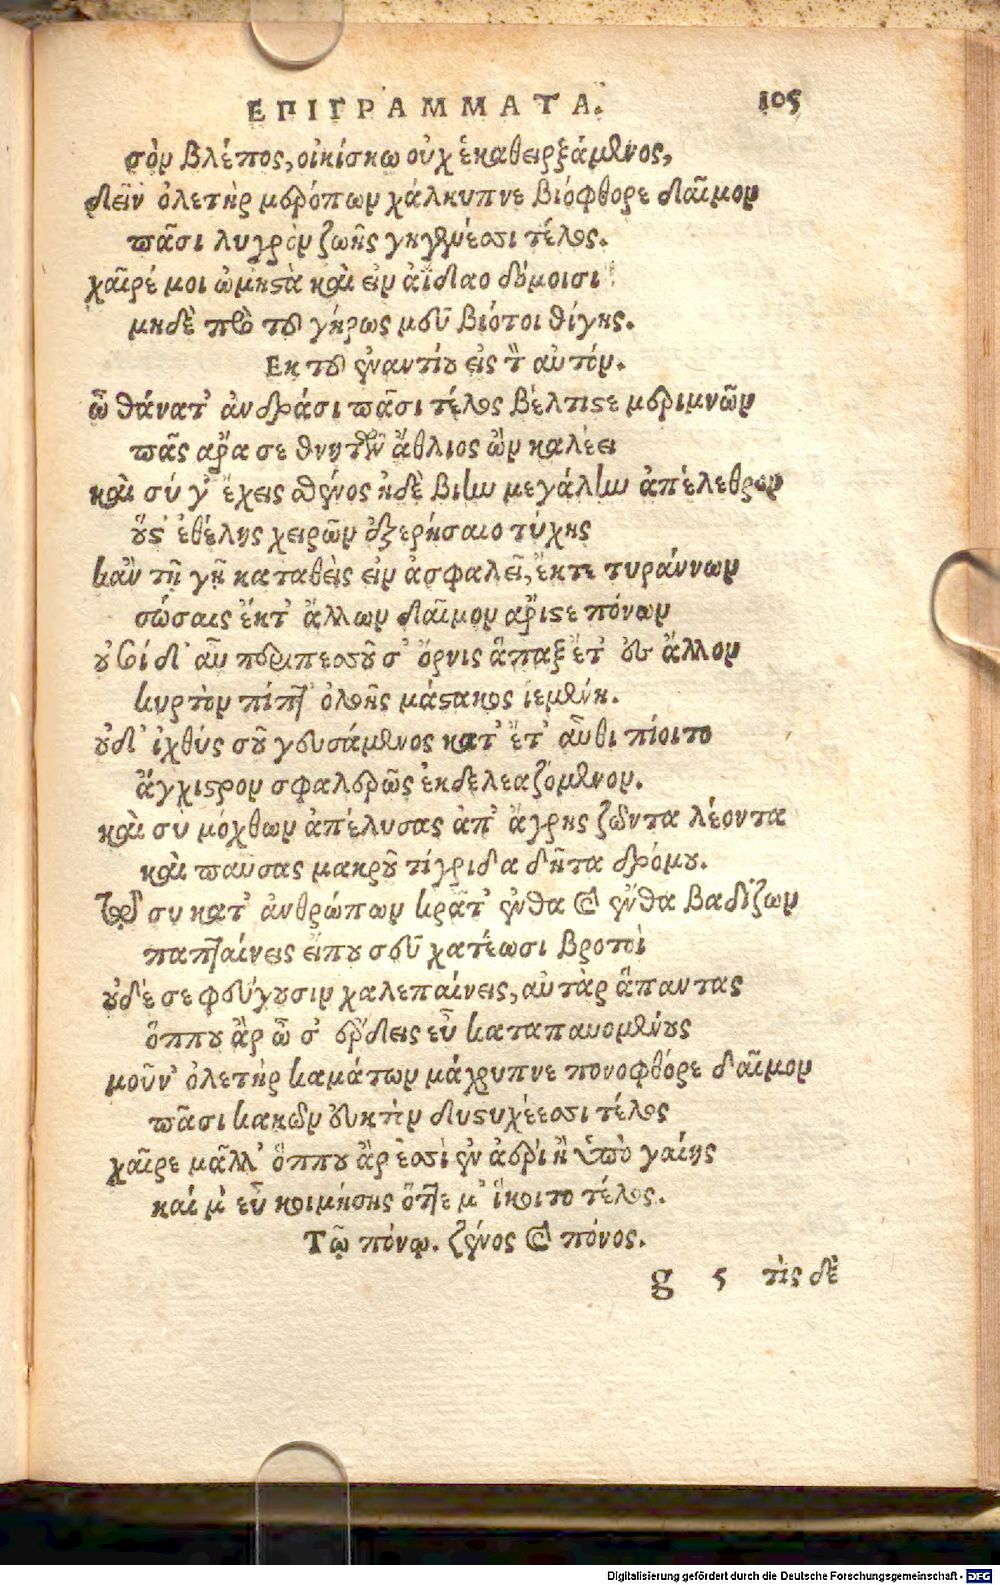 ΕΠΙΓΡΑΜΜΑΤΑ. 105
σὸν βλέπος, οἰκίσκω οὐχ ἑκαθειρξάμενος,
δεῖν' ὀλετὴρ μερόπων χάλκυπνε βιόφθορε δαῖμον
πᾶσι λυγρὸν ζωῆς γηγενέεσσι τέλος.
χαῖρέ μοι ὠμηστὰ καὶ εἰν ἀΐδαο δόμοισι
μηδὲ πρὸ τοῦ γήρως μεῦ βιότοι θίγης.
Εκ τοῦ ἐναντίου εἰς τ αὐτόν.
ὦ θάνατ' ἀνδράσι πᾶσι τέλος βέλτιστε μεριμνῶν
πᾶς ἄρα σε θνητῶν ἄθλιος ὢν καλέει
καὶ σύ γ' ἔχεις σθένος ἠδὲ βίην μεγάλην ἀπέλεθρον
οὕς ἐθέλης χειρῶν ἐξερήσαιο τύχης
κἂν τῆ γῆ καταθεὶς εἰν ἀσφαλεῖ, ἔκτε τυράννων
σώσαις ἔκτ' ἄλλων δαῖμον ἄριστε πόνων
οὐθί δ' αὖ περιπεσοῦσ' ὄρνις ἅπαξ ἔτ' ἐς ἄλλον
κυρτὸν πίπτ' ὀλοῆς μάστακος ἱεμένη.
οὐδ' ἰχθύς σοῦ γευσάμενος κατ' ἔτ' αὖθι πίοιτο
ἄγχιστρον σφαλερῶς ἐκδελεαζόμενον.
καὶ σὺ μόχθων ἀπέλυσας ἀπ' ἄγρης ζῶντα λέοντα
καὶ παῦσας μακροῦ τίγριδα δῆτα δρόμου.
συ κατ' ἀνθρώπων κρᾶτ' ἔνθα καὶ ἔνθα βαδίζων
παπταίνεις εἴπου σεῦ χατέωσι βροτοὶ
οὐδέ σε φεύγουσιν χαλεπαίνεις, αὐτὰρ ἅπαντας
ὅππου ἂρ ὦ σ' εὕδεις εὖ καταπαυομένους
μοῦν' ὀλετὴρ καμάτων μάγρυπνε πονοφθόρε δαῖμον
πᾶσι κακῶν εὐκτὴν δυστυχέεσσι τέλος
χαῖρε μᾶλλ' ὅππου ἂρ ἐσσὶ ἐν ἀέρι ἢ ὑπὸ γαίης
καί μ' εὖ κοιμήσης ὅττε μ' ἵκοιτο τέλος.
Τῷ πόνῳ. ζῆνος καὶ πόνος.
g 5 τὶς δὲ
Digitalisierung gefördert durch die Deutsche Forschungsgemeinschaft - DFG